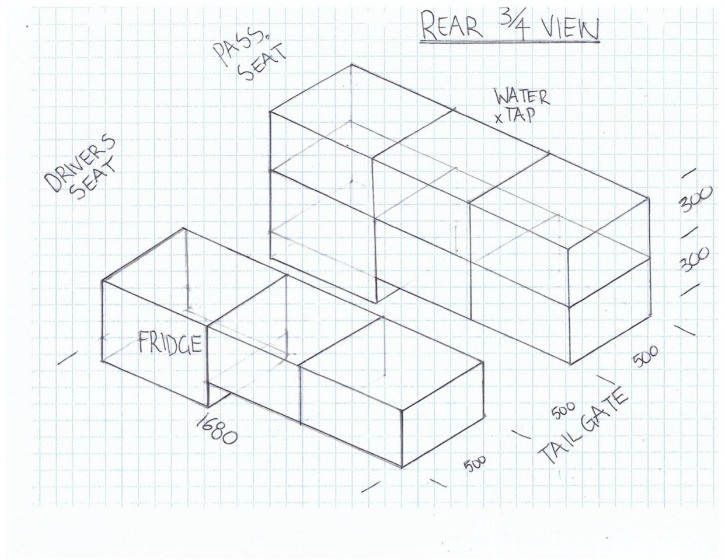 REAR 3/4 VIEW
PASS.
SEAT
WATER
x TAP
DRIVERS
SEAT
300
300
FRIDGE
500
500
TAIL GATE
1680
500